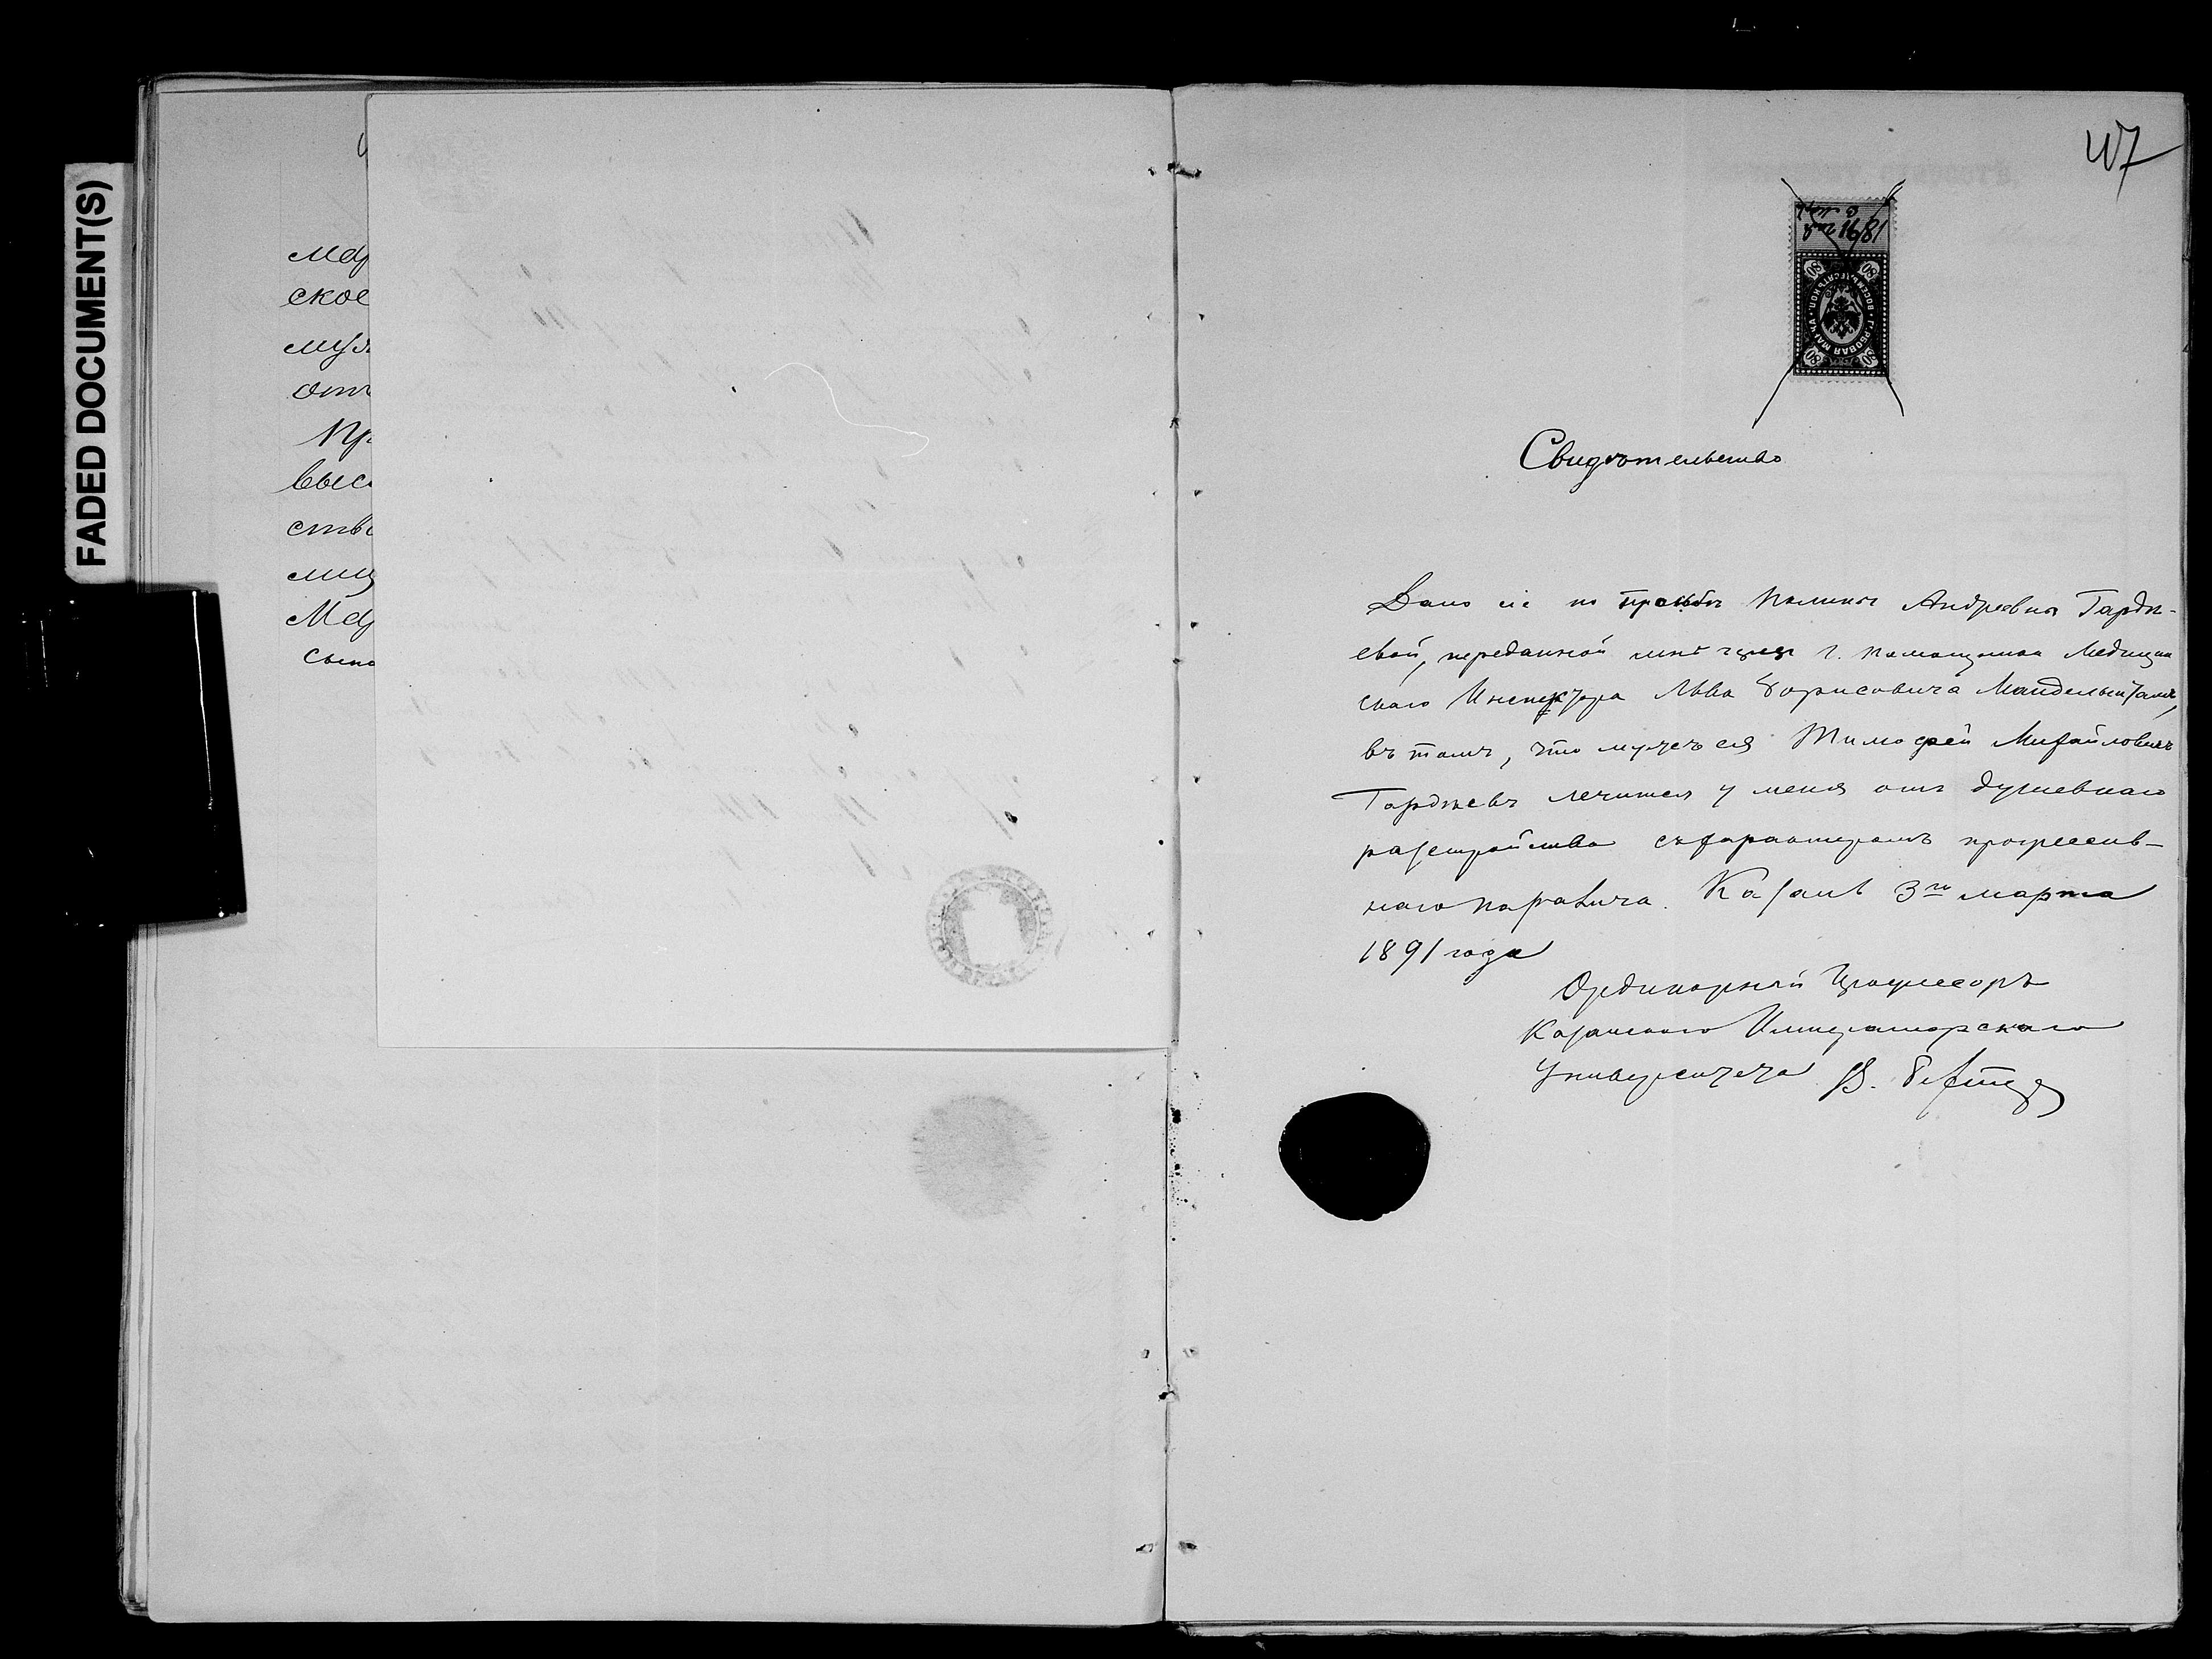 FADED DOCUMENT(S)
ское
Пр
выс
ств
сын
47
1891
80 80
ГЕРБОВАЯ МАРКА ВОСЕМЬДЕСЯТЪ КОП.
80 80
Свидѣтельство
Дано сіе по просьбѣ Полины Андреевны Гордѣ-
евой, переданной мнѣ чрезъ г. помощника Медицин
скаго Инспектора Льва Борисовича Мандельштама,
въ томъ, что мужъ ея Тимофей Михайловичъ
Гордѣевъ лечится у меня отъ душевнаго
разстройства съ характеромъ прогрессив-
наго паралича. Казань 3го марта
1891 года
Ординарный Профессоръ
Казанскаго Императорскаго
Университета В. Бехтерев